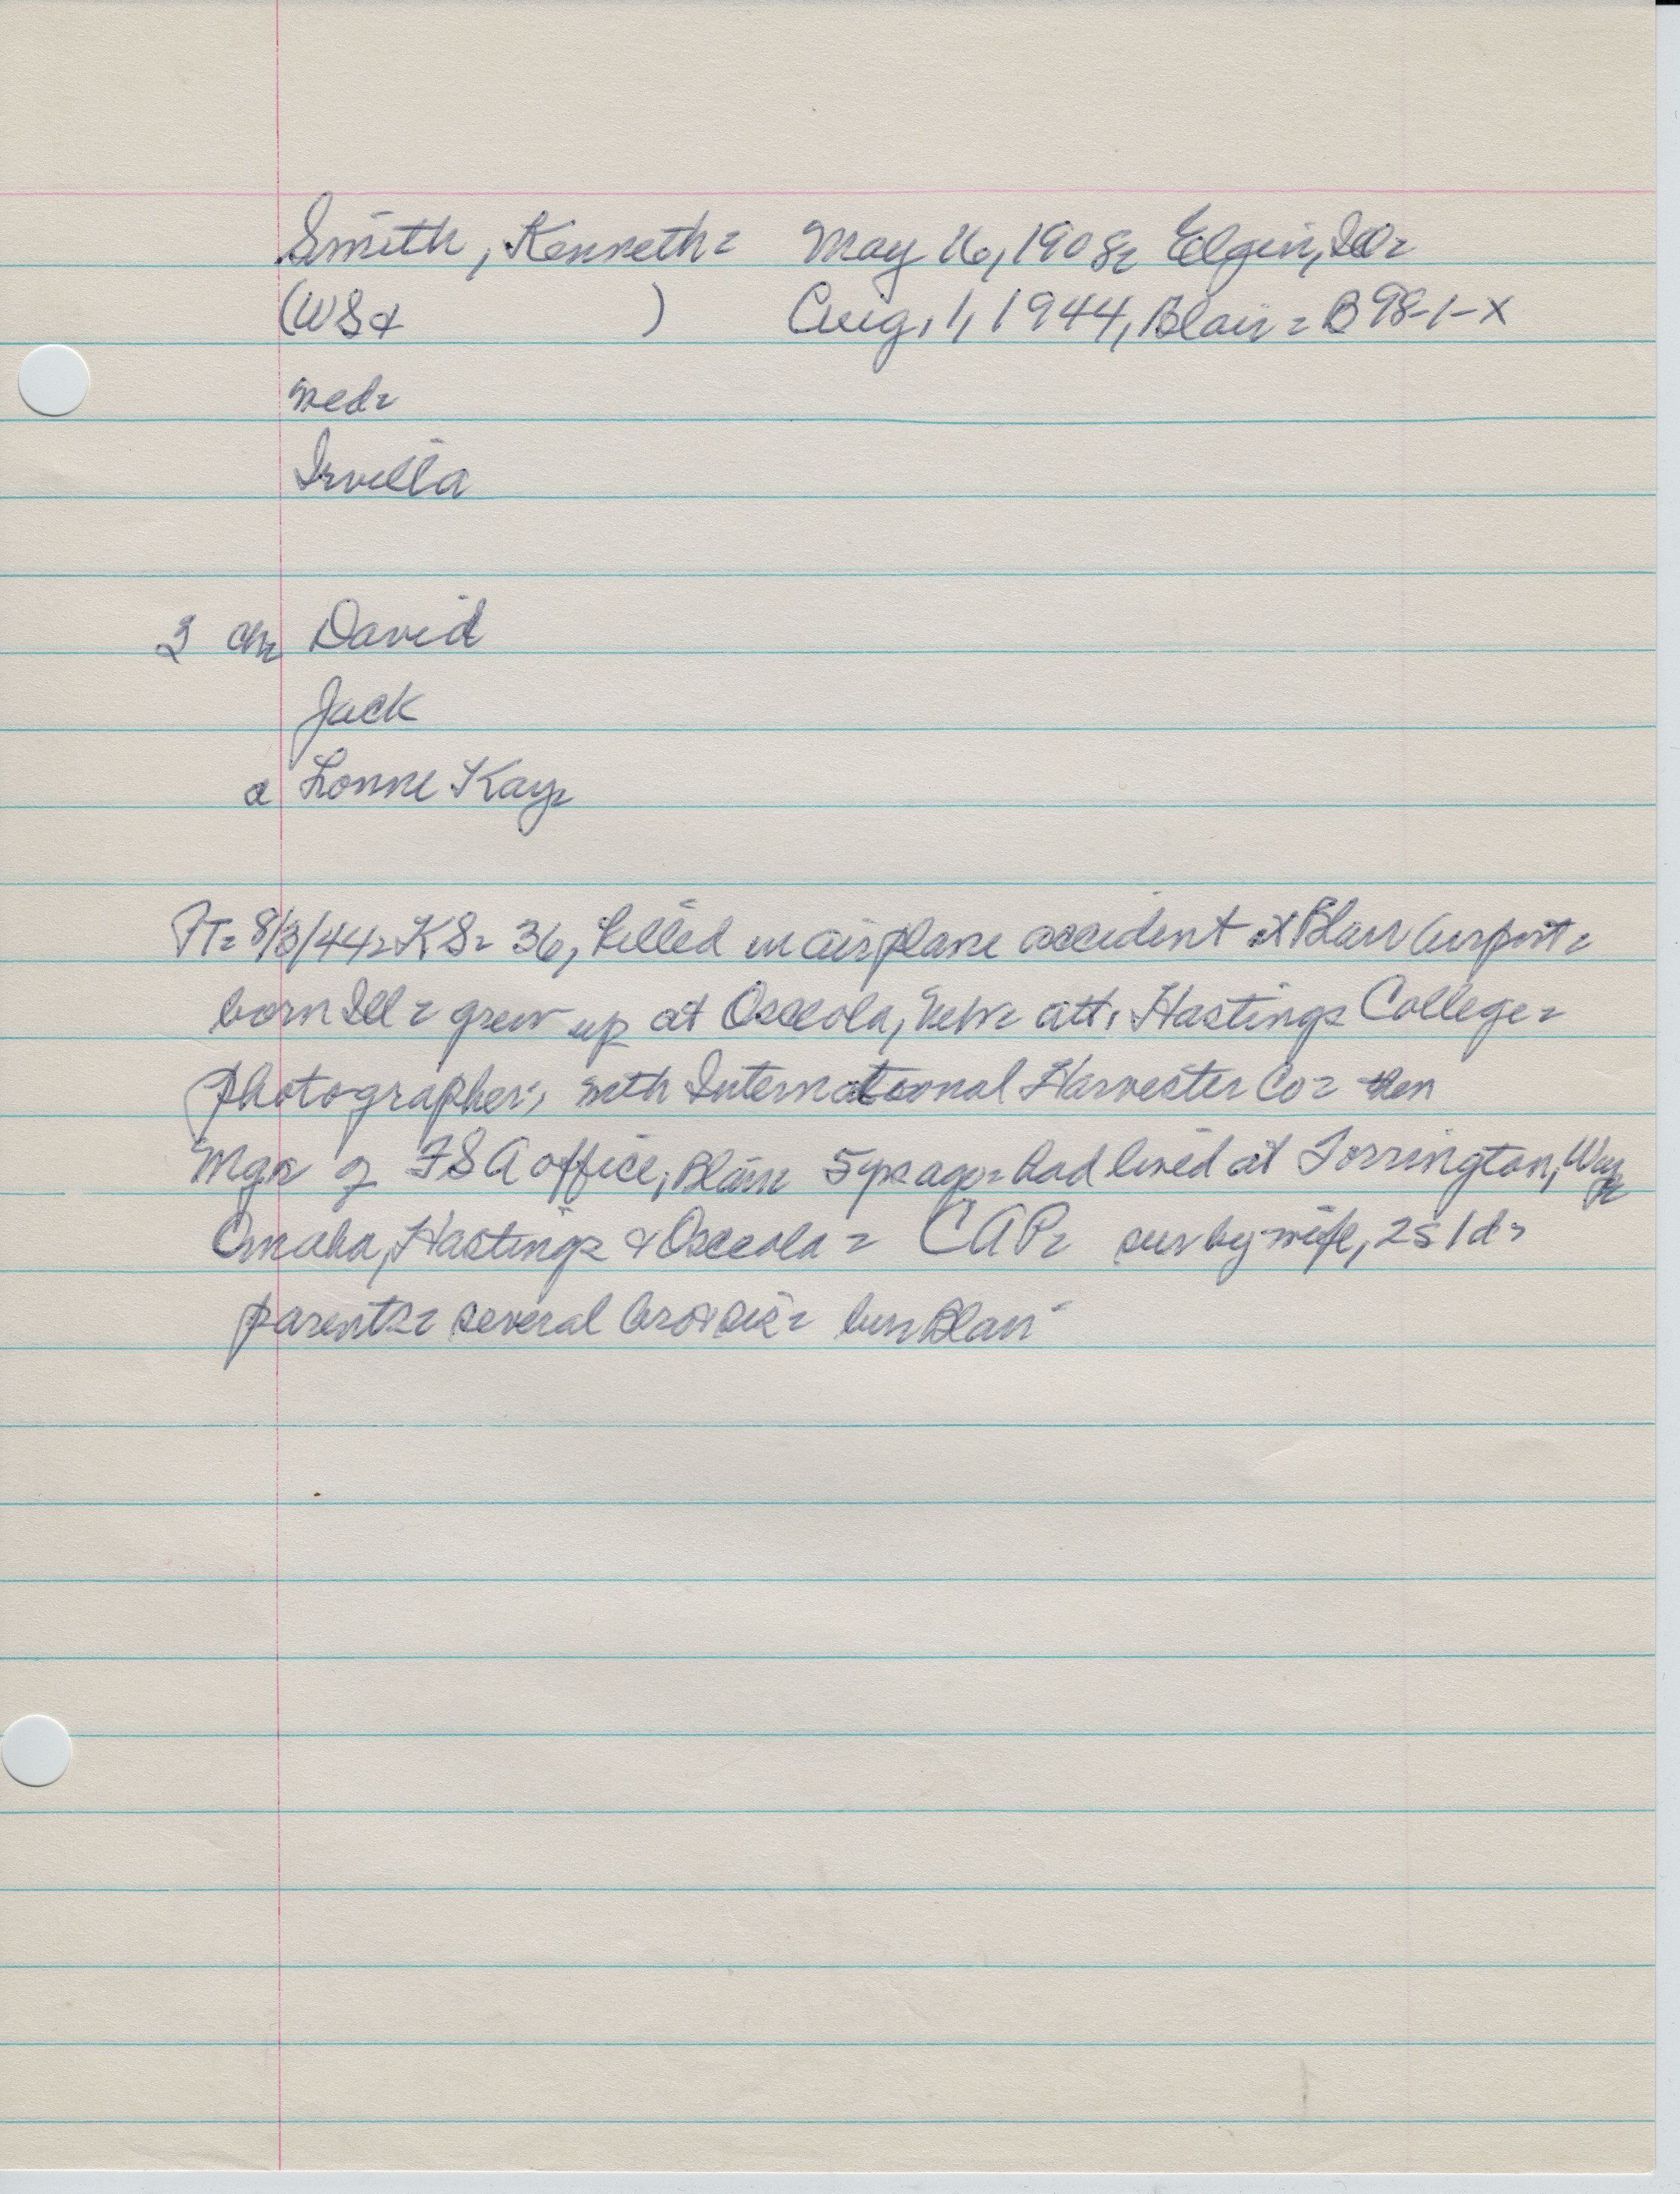 Smith, Kenneth= May 16, 1908= Elgin, Ill=
(WS& ) Aug, 1, 1944, Blair= B 98-1-X
med=
Irvilla
ch= David
Jack
Lonne Kay=
PT= 8/3/44= KS= 36, killed in airplane accident at Blair Airport=
born Ill= grew up at Osceola, Neb= att. Hastings College=
photographer, with International Harvester Co= then
Mgr of FSA office, Blair= 5 yrs ago= had lived at Torrington, Wy=
Omaha, Hastings & Osceola= CAP= sur by wife, 2s 1d=
parents= several bro & sis= bur Blair